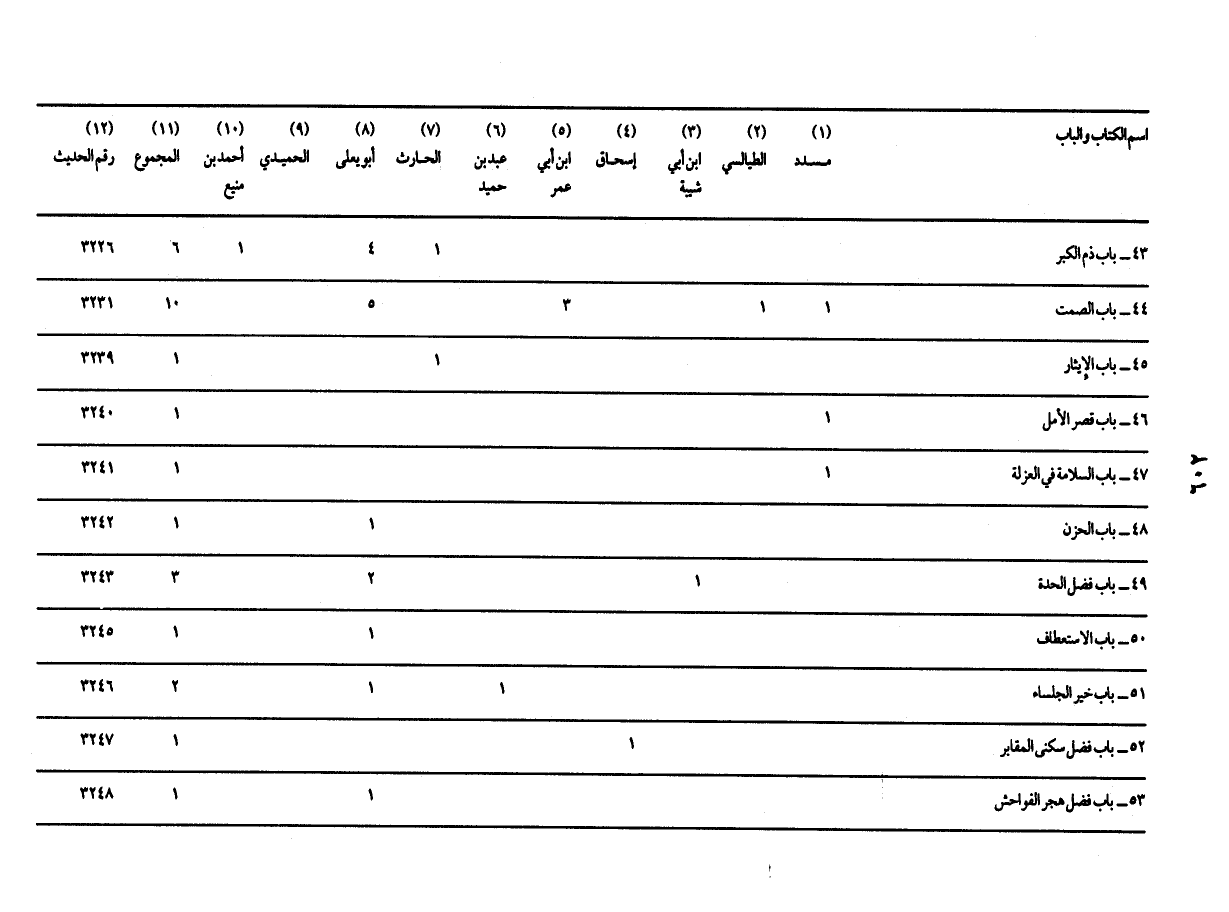 اسم الكتاب والباب (١) (٢) (٣) (٤) (٥) (٦) (٧) (٨) (٩) (١٠) (١١) (١٢)
مسدد الطيالسي ابن أبي إسحاق ابن أبي عبد بن الحارث أبو يعلى الحميدي أحمد بن المجموع رقم الحديث
شيبة عمر حميد منيع
٤٣ ــ باب ذم الكبر ١ ٤ ١ ٦ ٣٢٢٦
٤٤ ــ باب الصمت ١ ١ ٣ ٥ ١٠ ٣٢٣١
٤٥ ــ باب الإيثار ١ ١ ٣٢٣٩
٤٦ ــ باب قصر الأمل ١ ١ ٣٢٤٠
٤٧ ــ باب السلامة في العزلة ١ ١ ٣٢٤١
٤٨ ــ باب الحزن ١ ١ ٣٢٤٢
٤٩ ــ باب فضل الحدة ١ ٢ ٣ ٣٢٤٣
٥٠ ــ باب الاستعطاف ١ ١ ٣٢٤٥
٥١ ــ باب خير الجلساء ١ ١ ٢ ٣٢٤٦
٥٢ ــ باب فضل سكنى المقابر ١ ١ ٣٢٤٧
٥٣ ــ باب فضل هجر الفواحش ١ ١ ٣٢٤٨
٦٠٢